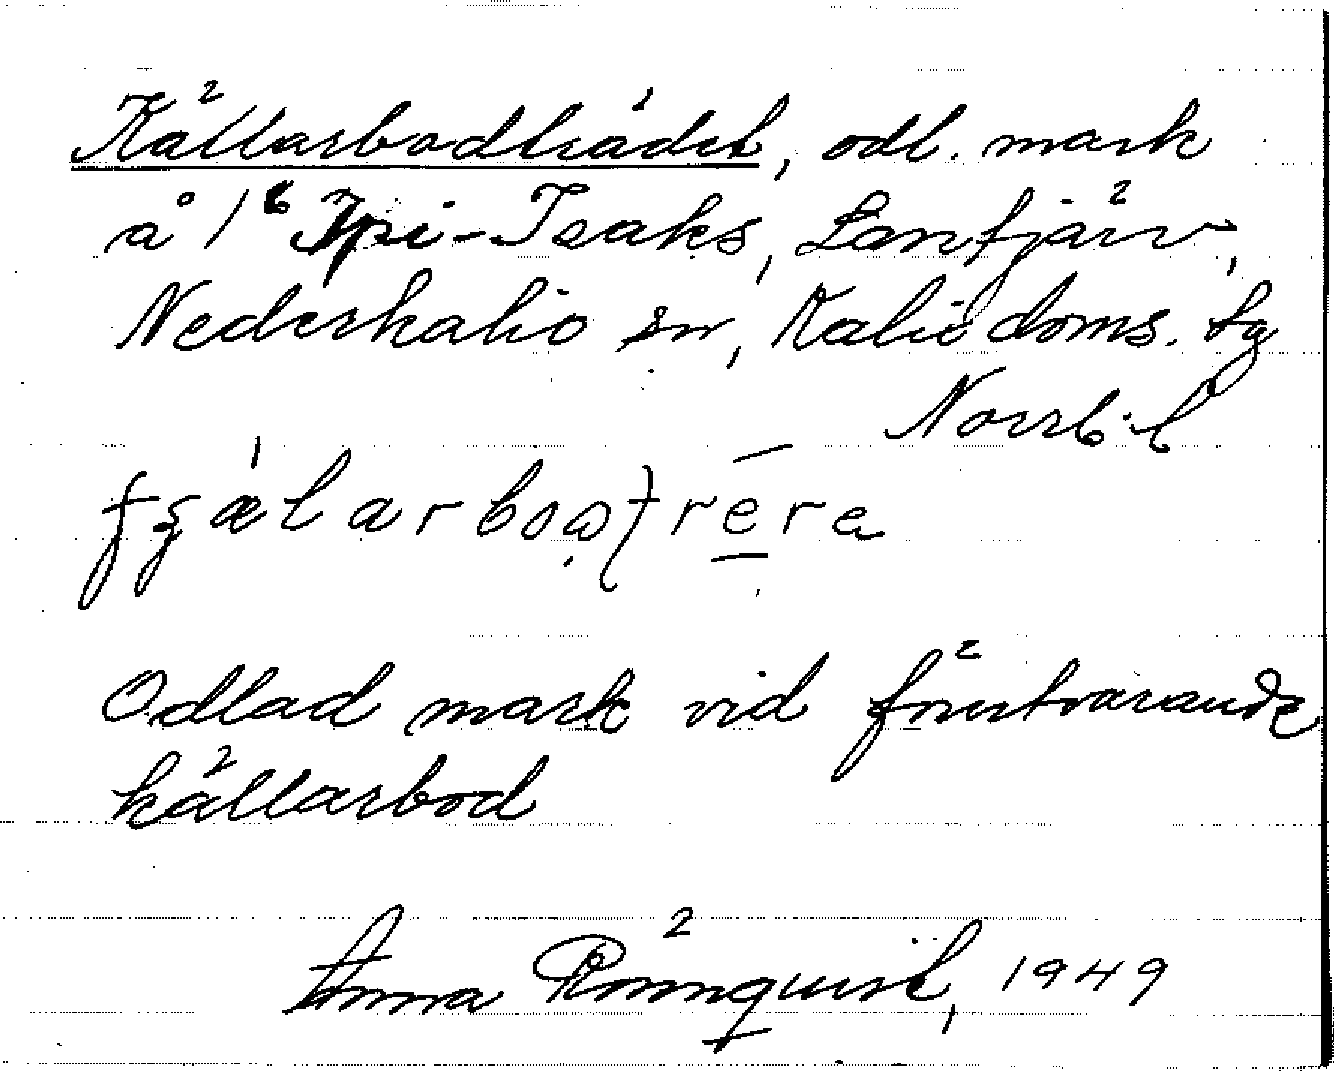 Källarbodträdet, odl. mark
å 1⁶ Ipi-Isaks, Lanfjärv,
Nederkalix sn, Kalix doms. tg
Norrb. l
Odlad mark vid förutvarande
källarbod
Anna Rönnquist, 1949